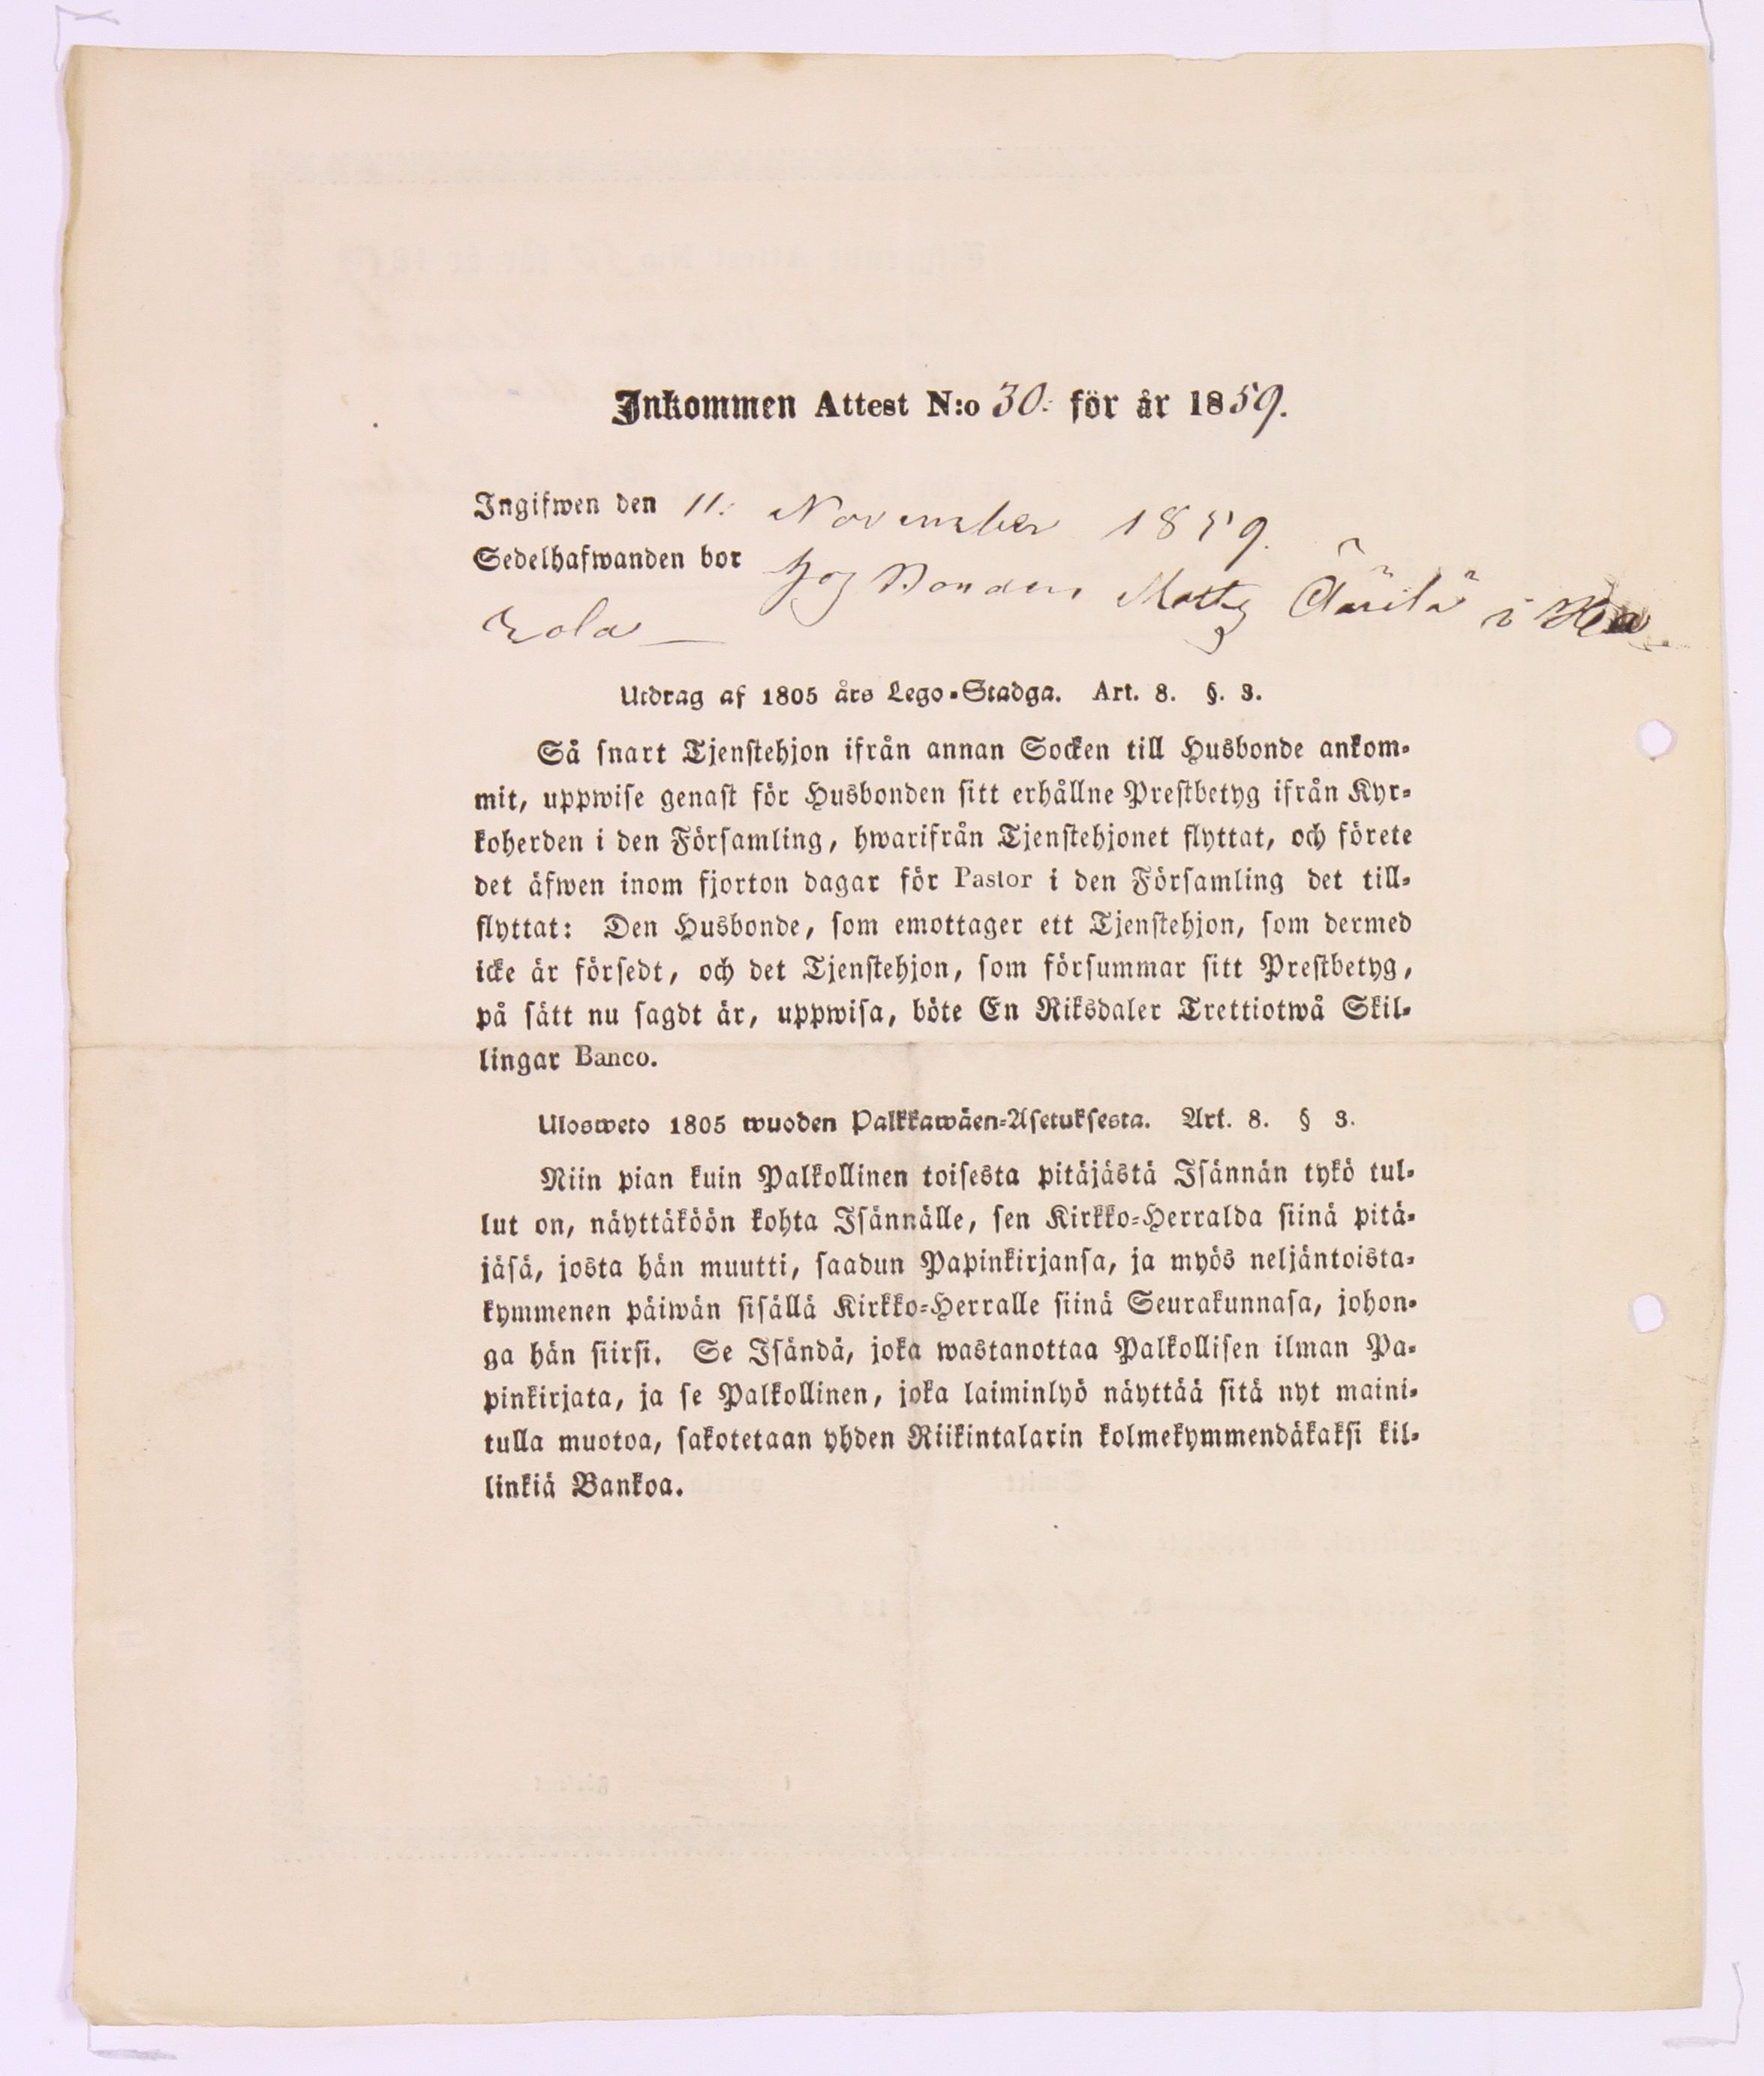 Inkommen Attest N:o 30. för år 1859.
Ingifwen den 11. November 1859.
Sedelhafwanden bor hos Bonden Matts Äärilä i Ka
rola
Utdrag af 1805 års Lego-Stadga. Art. 8. §. 3.
Så snart Tjenstehjon ifrån annan Socken till Husbonde ankom-
mit, uppwise genast för Husbonden sitt erhållne Prestbetyg ifrån Kyr-
koherden i den Församling, hwarifrån Tjenstehjonet flyttat, och förete
det äfwen inom fjorton dagar för Pastor i den Församling det till-
flyttat: Den Husbonde, som emottager ett Tjenstehjon, som dermed
icke är försedt, och det Tjenstehjon, som försummar sitt Prestbetyg,
på sätt nu sagdt är, uppwisa, böte En Riksdaler Trettiotwå Skil-
lingar Banco.
Ulosweto 1805 wuoden Palkkawäen-Asetuksesta. Art. 8. § 3.
Niin pian kuin Palkollinen toisesta pitäjästä Isännän tykö tul-
lut on, näyttäköön kohta Isännälle, sen Kirkko-Herralda siinä pitä-
jäsä, josta hän muutti, saadun Papinkirjansa, ja myös neljäntoista-
kymmenen päiwän sisällä Kirkko-Herralle siinä Seurakunnasa, johon-
ga hän siirsi. Se Isändä, joka wastanottaa Palkollisen ilman Pa-
pinkirjata, ja se Palkollinen, joka laiminlyö näyttää sitä nyt maini-
tulla muotoa, sakotetaan yhden Riikintalarin kolmekymmendäkaksi kil-
linkiä Bankoa.